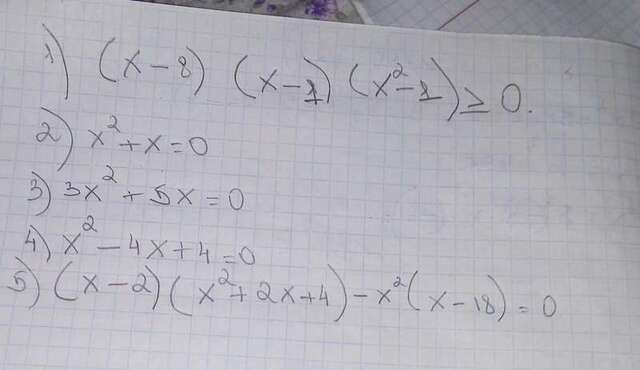 1) (x-8) (x-1) (x²-1) ≥ 0.
2) x² + x = 0
3) 3x² + 5x = 0
4) x² - 4x + 4 = 0
5) (x-2) (x² + 2x + 4) - x² (x - 18) = 0